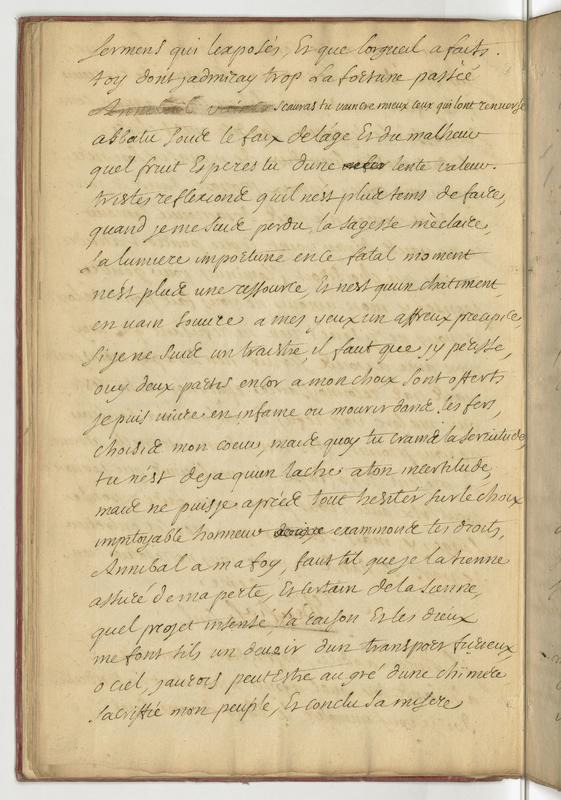 sermens qui lexposés, Et que lorgueil a faits.
toy dont jadmiray trop La fortune passée
scauras tu vaincre mieux ceux qui lont renversé
abbatu soue le faix delâge Et du malheur
quel fruit Esperes tu dune lente valeur.
tristes reflexions quil nest plus tems de faire,
quand je me suis perdu, la sagesse m'eclaire,
sa lumiere importune en ce fatal moment
nest plus une ressource, Et nest quun châtiment,
en vain souvre a mes yeux un affreux precipice
si je ne suis un traistre, il faut que jy perisse,
ouy deux partis encor a mon choix sont offerts
je puis vivre en infame ou mourir dans les fers,
choisis mon coeur, mais quoy tu crains la servitude,
tu n'est deja quun lache a ton incertitude,
mais ne puis je après tout hesiter sur le choix
impitoyable honneur examinons tes droits,
Annibal a ma foy, faut til que je la tienne
assuré de ma perte, Et certain de la sienne,
quel projet insensé, la raison Et les dieux
me font ils un devoir dun transport furieux,
o ciel, jaurois peutestre au gré dune chimére
sacriffié mon peuple, Et conclu sa misere